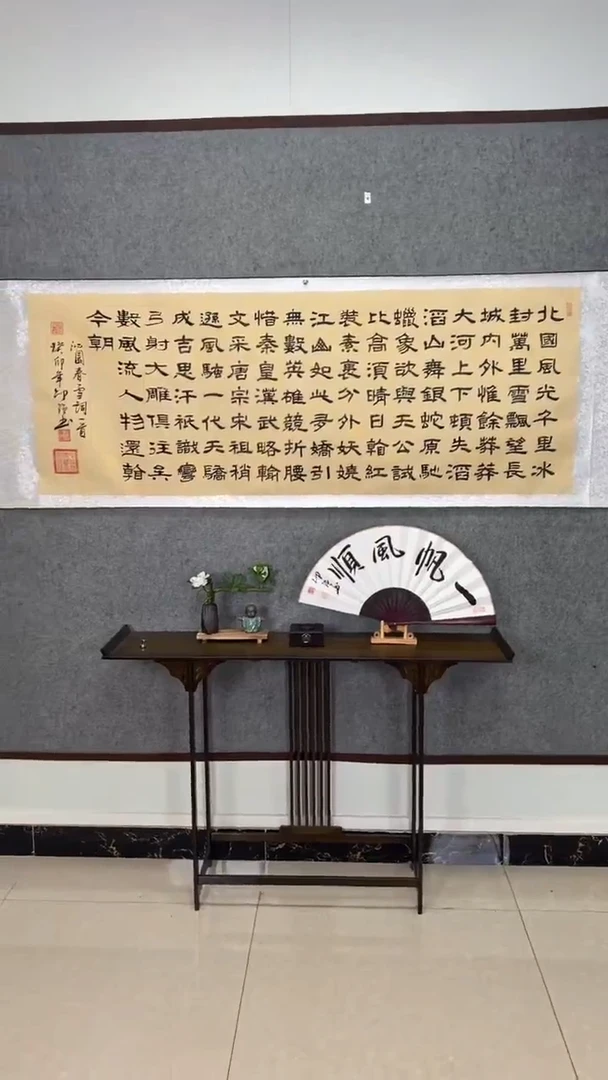 北國風光千里冰
封萬里雪飄望長
城内外惟餘莽莽
大河上下頓失滔
滔山舞銀蛇原馳
蠟象欲與天公試
比高須晴日看紅
裝素裹分外妖嬈
江山如此多嬌引
無數英雄競折腰
惜秦皇漢武略輸
文采唐宗宋祖稍
遜風騷一代天驕
成吉思汗祇識彎
弓射大雕俱往矣
數風流人物還看
今朝
沁園春雪詞一首
癸卯年
一帆風順